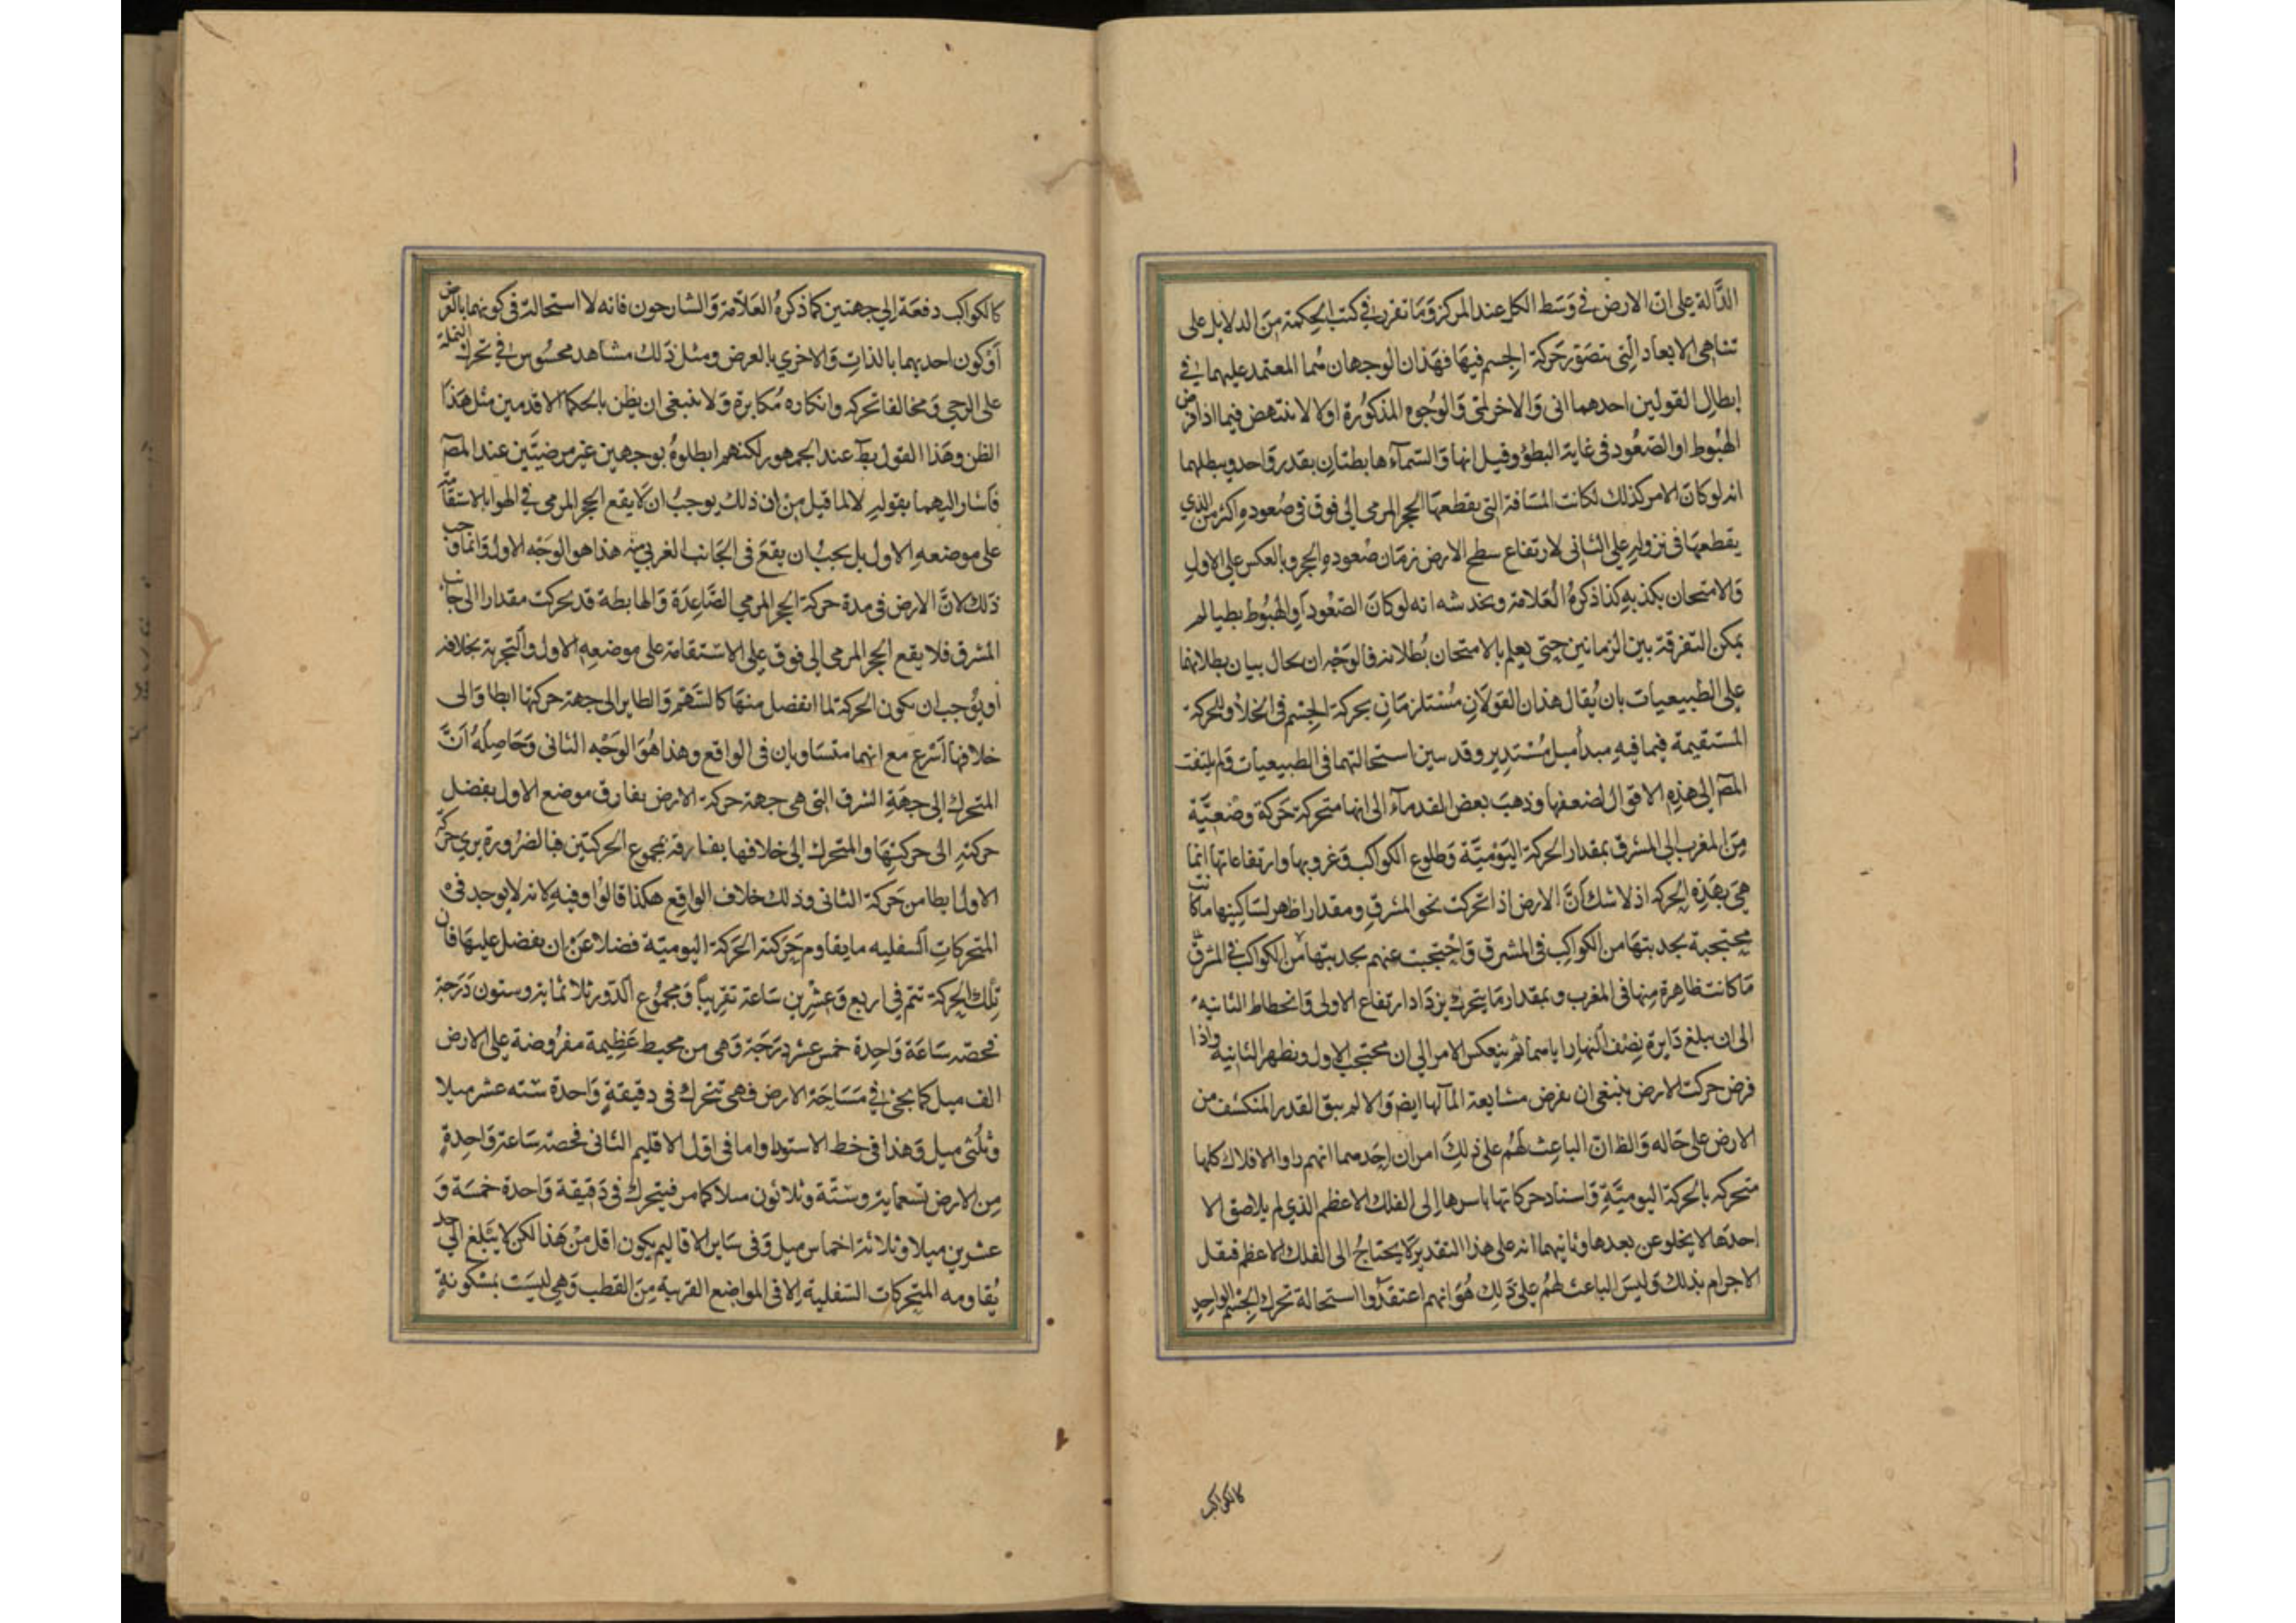 الدَّالة على ان الارض في وَسَط الكل عند المركز وَمَا تقرر في كتب الحكمة مِنَ الدلايل على
تناهى الابعاد التي تتصَوّر حَركة الجسم فيهَا فهَذان الوجهان هُما المعتمد عليهما في
ابطال القولين احدهما انى وَالاخر لمّى وَالوُجوه المذكورة اولا لا تنتهض فيما اذا فرض
الهُبُوط او الصّعُود فى غاية البطؤ وقيل انها وَالسّمآء هابطتان بقدر وَاحد ويبطلهما
انه لو كانَ الامر كذلك لكانت المسَافة التى يقطعهَا الحجر المرمى الى فوق فى صُعوده اكثر من الذي
يقطعهَا فى نزوله على الثانى لارتفاع سطح الارض زمَان صُعوده الحجر وبالعكس على الاول
وَالامتحان يكذبه كذا ذكرهُ العَلامة ويخدشه انه لو كانَ الصّعُود اَو الهبُوط بطيا لم
يمكن التفرقة بين الزمانين حتى يعلم بالامتحان بُطلانه فالوَجْه ان يحال بيان بطلانهما
على الطبيعيات بان يُقال هذان القولَان مُسْتلزمَان بحركة الجسْم فى الخلأ وللحركة
المسْتقيمة فيما فيه مبدأ ميل مُسْتدير وقد سين استحالتهما فى الطبيعيات وَلم يلتفت
المصَ الى هَذِه الاقوال لضعفها وذهبَ بعض القدمآء الى انها متحركة حَركة وضعيَّة
مِنَ المغرب الى المشرق بمقدار الحركة اليَوْميَّة وَطلوع الكواكب وَغروبها وارتفاعاتها انما
هىَ بهَذِه الحركه اذ لا شك انَّ الارض اذا تحركت نحو المشرق ومقدارا ظهر لساكينها ما كانت
محتجبة بحدبتهَا من الكواكب فى المشرق وَاحْتجبت عنهم بحدبتها من الكواكب في المشرق
مَا كانت ظاهرة منها فى المغرب وبمقدار مَا يتحرك يزدَاد ارتفاع الاولى وَانحطاط الثانيه
الى ان يبلغ دَايرة نِصْف النهار اياسما ثم ينعكس الامر الى ان محتجب الاول ونظهر الثانية واذا
فرض حركت الارض ينبغى ان نفرض مشايعة المآ لها ايضَ وَالا لم يبق القدر المنكشف من
الارض على حَاله وَالظ انّ الباعِث لهُم على ذلِكَ امران احَدهما انهم راوا الافلاك كلها
متحركه بالحركة اليوميَّة وَاسناد حركاتها باسرها الى الفلك الاعظم الذي لم يلاصق الا
احدهَا لا يخلو عن بعد وثانيهما انه على هذا التقدير لَا يحتاجُ الى الفلك الاعظم فتقل
الاجرام بذلك وَليسَ الباعث لهُم على ذلِك هُوَ انهم اعتقدُوا استحالة تحرك الجسْم الواحد
كالكواكب
كالكواكب دفعَة الى جهتين كما ذكرهُ العَلامة وَالشارحون فانه لا استحالة فى كونهما بالعرض
اَوْ كون احديهما بالذات وَالاخري بالعرض ومثل ذلك مشاهد محسُوس في تحرك النملة
على الرحي وَمخالفا تحركه وانكاره مُكابرة وَلا ينبغى ان يظن بالحكما الاقدمين مثل هَذا
الظن وهَذا القول بطَ عند الجمهور لكنهم ابطلوهُ بوجهين غير مرضيَّين عند المصَ
فاشار اليهما بقوله لا لما قيل مِنْ ان ذلك يوجبُ ان لَا يقع الحجر المرمى في الهوا بالاستقامة
على موضعه الاول بل يجبُ ان يقعَ فى الجَانب الغربي منه هذا هو الوَجْه الاول وَانما وجب
ذلك لانَّ الارض فى مدة حركة الحجر المرمي الصَّاعِدَة وَالهابطة قد تحركت مقدارا الى جانب
المشرق فلا يقع الحجر المرمى الى فوق على الاسْتقامة على موضعه الاول وَالتجربة بخلافه
اَو يُوجب ان تكون الحركة لما انفصل منهَا كالسّهْم وَالطاير الى جهة حركتها ابطا وَالى
خلافها اَسْرع مع انهما متسَاويان فى الواقع وهذا هُوَ الوَجْه الثانى وَحَاصِلُهُ انَّ
المتحرك الى جهَة الشرق التى هى جهة حركة الارض يفارق موضع الاول بفضل
حركته الى حركتهَا والمتحرك الى خلافها يفارقه بمجموع الحركتين فبالضرورة يري حركة
الاول ابطا من حَركة الثانى وذلك خلاف الواقِع هكذا قالوا وفيه لانه لا يوجد فى
المتحركاتِ السفليه ما يقاوم حَركته الحَركة اليوميّة فضلا عَنْ ان يفضل عليهَا فان
تِلك الحركة تتم في اربع وَعشرين سَاعة تقريباً وَمجمُوع الدّور ثلاثماية وستون دَرَجة
فحصّة سَاعَة وَاحِدة خمس عشر دَرَجَة وَهى من محيط عَظِيمة مفرُوضَة على الارض
الف ميل كما يجئ في مَسَاحَة الارض فهى تتحرك فى دقيقةٍ وَاحدة ستّه عشر ميلا
وثلُثى ميل وَهذا فى خط الاستوا واما فى اوّل الاقليم الثانى فحصّة سَاعة وَاحِدةٍ
مِن الارض تسعماية وستّة وثلاثون ميلا كما مر فيتحرك فى دَقيقة وَاحدة خمسَة وَ
عشرين ميلا وثلاثة اخماس ميل وَفى سَاير الاقاليم يكون اقل مِنْ هَذا لكن لا يبَلغ الى حد
يُقاومه المتحركات السّفلية الا فى المواضع القريبة مِنَ القطب وَهى ليسَت بمسْكونةٍ